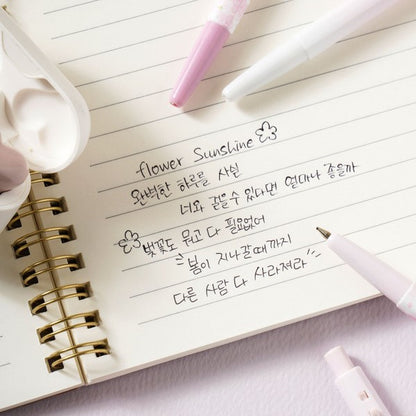 flower Sunshine
완벽한 하루를 사서
너와 걸을 수 있다면 얼마나 좋을까
벚꽃도 뭐고 다 필요없어
"봄이 지나갈때까지
다른 사람 다 사라져라"